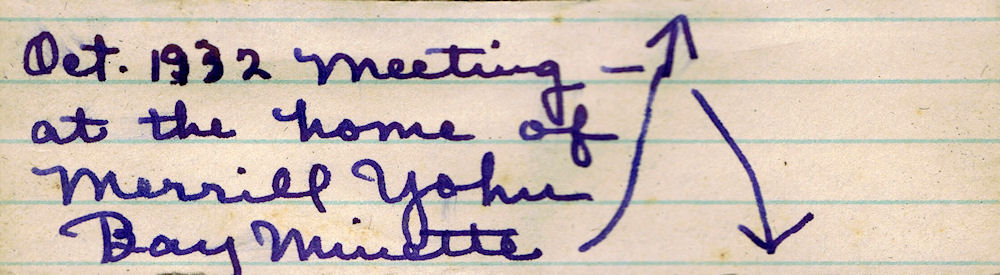 Oct. 1932 Meeting –
at the home of
Merrill Yohn
Bay Minette